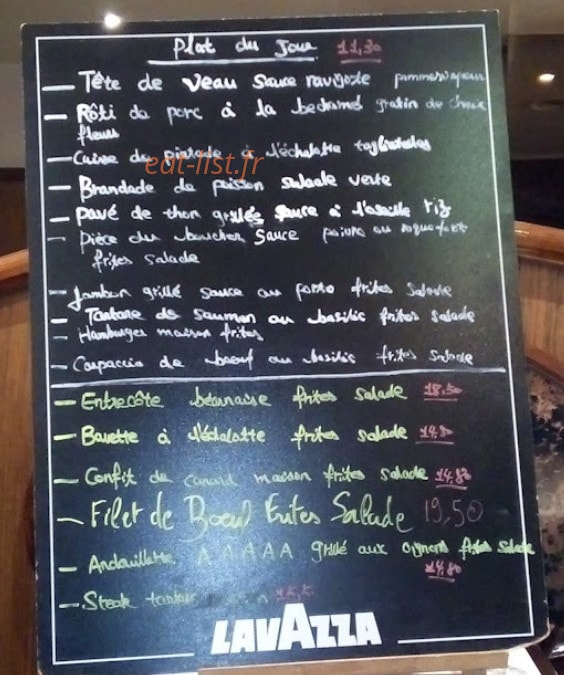 Plat du Jour 11,30
- Tête de veau sauce ravigote pommes vapeur
- Rôti de porc à la bechamel gratin de choux
fleurs
- Cuisse de pintade à l'échalotte tagliatelles
eat-list.fr
- Brandade de poisson salade verte
- Pavé de thon grillés sauce à l'oseille riz
- Pièce du boucher sauce poivre ou roquefort
frites salade
- Jambon grillé sauce au porto frites salade
- Tartare de saumon au basilic frites salade
- Hamburger maison frites
- Carpaccio de boeuf au basilic frites salade
- Entrecôte béarnaise frites salade 18,50
- Bavette à l'échalotte frites salade 14,80
- Confit de canard maison frites salade 14,80
- Filet de Boeuf Frites Salade 19,50
- Andouillette AAAAA grillé aux oignons frites salade
14,80
- Steak tartare
LAVAZZA